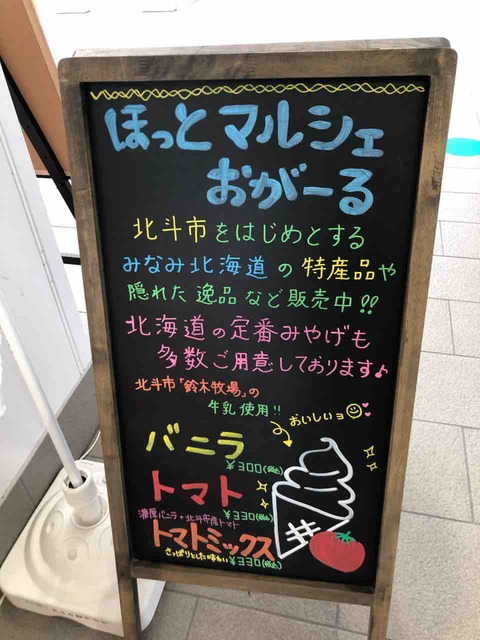 ほっとマルシェ
おがーる
北斗市をはじめとする
みなみ北海道の特産品や
隠れた逸品など販売中!!
北海道の定番みやげも
多数ご用意しております♪
北斗市「鈴木牧場」の
牛乳使用!!
おいしいョ
バニラ
¥300(税込)
トマト
¥330(税込)
濃厚バニラ+北斗市産トマト
トマトミックス
さっぱりとした味わい ¥330(税込)